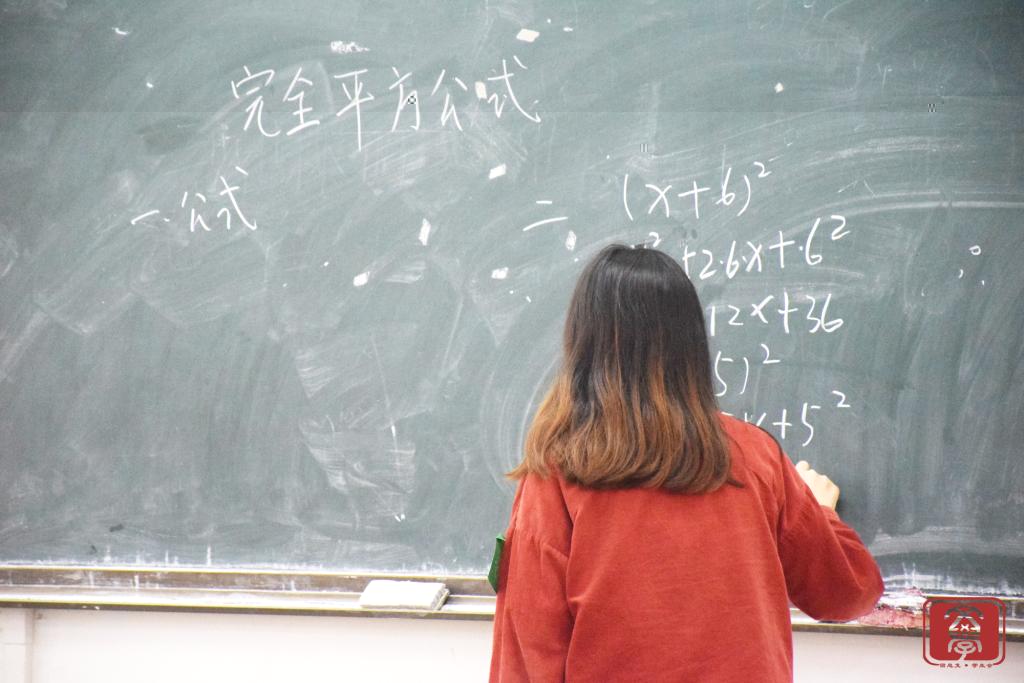 完全平方公式
一.公式
二
(x+6)²
+2·6·x+·6²
12x+36
5)²
x+5²